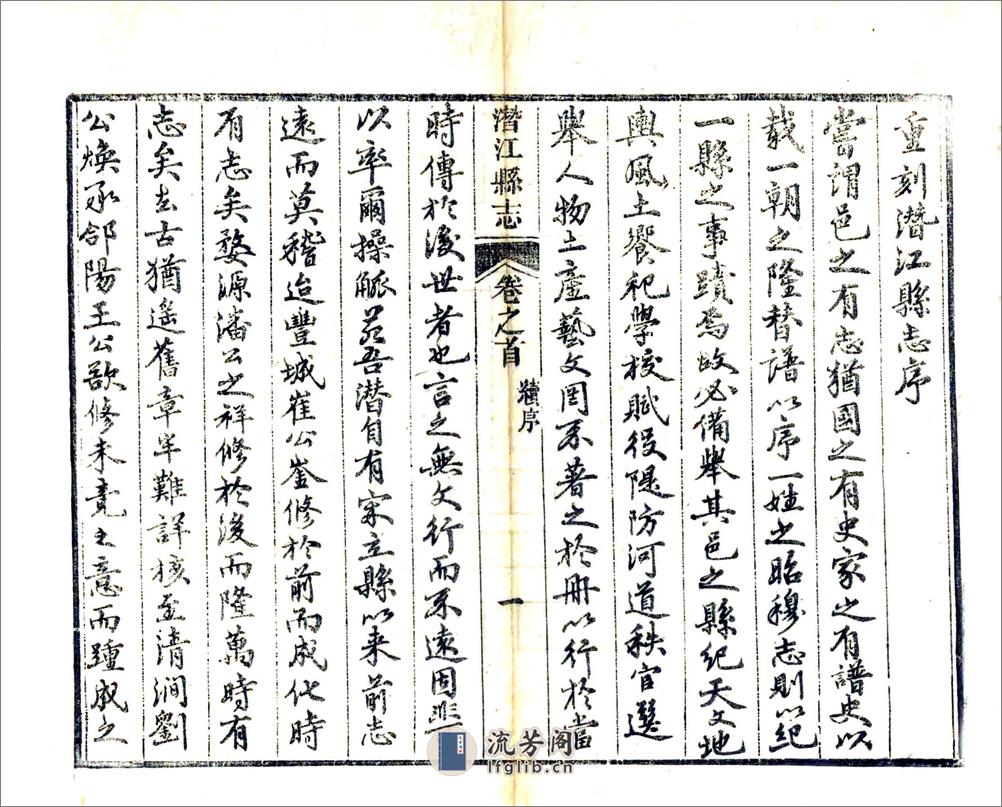 重刻潛江縣志序
嘗謂邑之有志猶國之有史家之有譜史以
載一朝之隆替譜以序一姓之昭穆志則以紀
一縣之事蹟焉故必備舉其邑之縣紀天文地
輿風土饗祀學校賦役隄防河道秩官選
舉人物土產藝文罔不著之於冊以行於當
潛江縣志 卷之首 續序 一
時傳於後世者也言之無文行而不遠固非
以率爾操觚若吾潛自有宋立縣以来前志
遠而莫稽迨豐城崔公崟修於前而成化時
有志矣婺源潘公之祥修於後而隆萬時有
志矣在古猶遥舊章牢難詳核至清澗劉
公煥承郃陽王公歆修未竟之意而踵成之
流芳阁
lfglib.cn